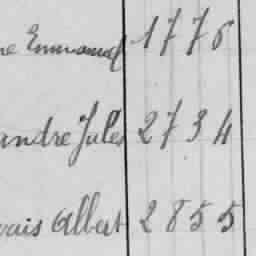 ne Emmanuel 1776
andre Jules 2734
vais Albert 2855